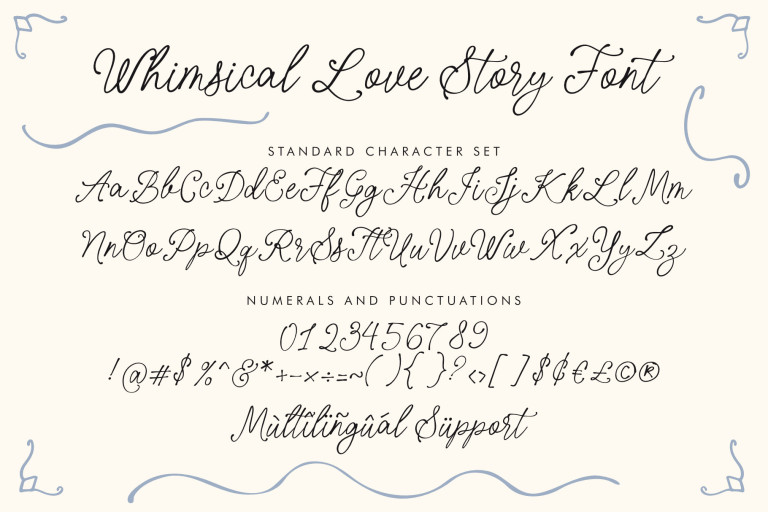 Whimsical Love Story Font
STANDARD CHARACTER SET
AaBbCcDdEeFfGgHhIiJjKkLlMm
NnOoPpQqRrSsTtUuVvWwXxYyZz
NUMERALS AND PUNCTUATIONS
0123456789
!@#$%^&*+−×÷=~(){}?<>[]$₵€£©®
Mùltĩlïñgûál Süppört